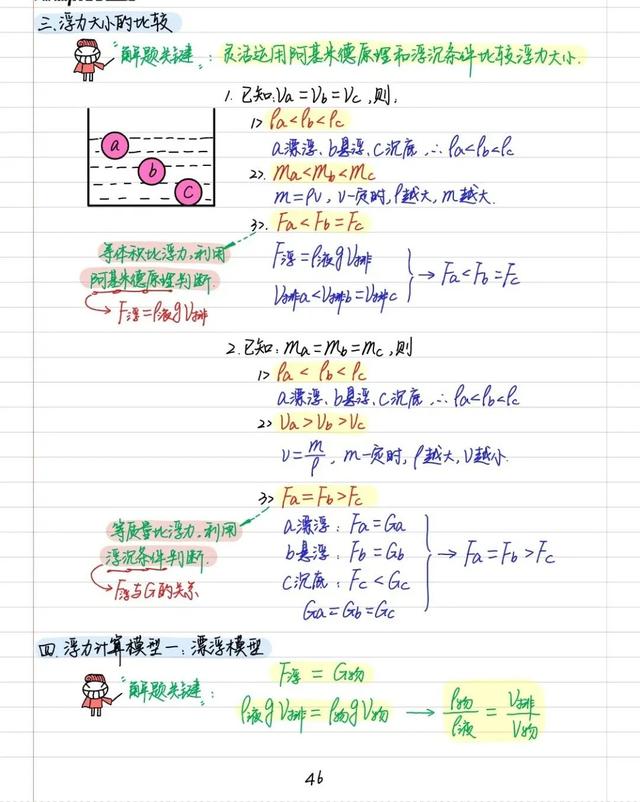 三.浮力大小的比较
"解题关键":灵活运用阿基米德原理和浮沉条件比较浮力大小.
1.已知:Va=Vb=Vc,则,
1> ρa<ρb<ρc
a漂浮、b悬浮、c沉底,∴ρa<ρb<ρc
2>. ma<mb<mc
m=ρV, V一定时,ρ越大,m越大.
3>. Fa<Fb=Fc
等体积比浮力,利用
阿基米德原理判断.
→F浮=ρ液gV排
F浮=ρ液gV排
V排a<V排b=V排c
→Fa<Fb=Fc
a
b
c
2.已知:ma=mb=mc,则
1> ρa<ρb<ρc
a漂浮、b悬浮、c沉底,∴ρa<ρb<ρc
2> Va>Vb>Vc
V=m/ρ, m一定时,ρ越大,V越小.
3> Fa=Fb>Fc
等质量比浮力,利用
浮沉条件判断.
→F浮与G的关系
a漂浮:Fa=Ga
b悬浮:Fb=Gb
c沉底:Fc<Gc
Ga=Gb=Gc
→Fa=Fb>Fc
四.浮力计算模型一:漂浮模型
"解题关键":
F浮=G物
ρ液gV排=ρ物gV物 → ρ物/ρ液=V排/V物
46